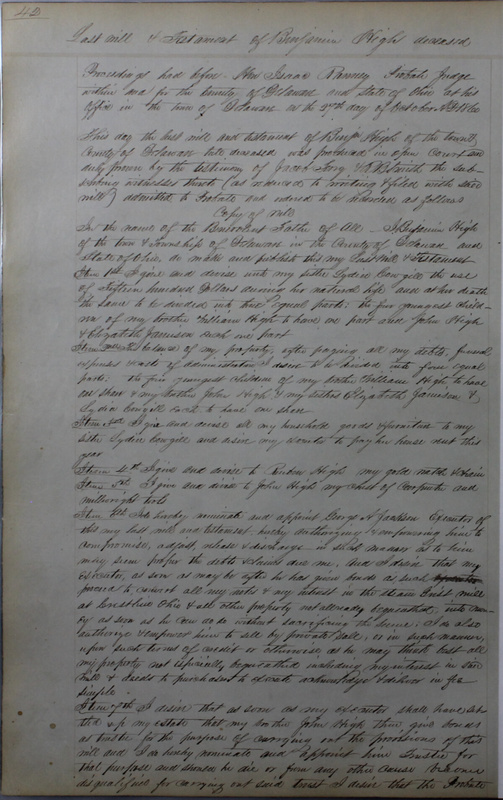 42
Last will & Testament of Benjamin High deceased
Proceedings had before Hon Isaac Ranney Probate Judge
within and for the County of Delaware and State of Ohio at his
Office in the town of Delaware on the 27th day of October AD 1860
This day the last will and testament of Benjn High of the town &
County of Delaware late deceased was produced in open Court and
duly proven by the testimony of Jacob & Smith the sub-
scribing witnesses thereto (as reduced to writing & filed with said
will) admitted to Probate and ordered to be recorded as follows
Copy of Will
In the name of the Benevolent Father of All I Benjamin High
of the town & Township of Delaware in the County of Delaware and
State of Ohio, do make and publish this my last will & testament
Item 1st I give and devise unto my sister Lydia Cowgill the use
of Sixteen hundred dollars during her natural life and at her death
the same to be divided into three equal parts: the five youngest child-
ren of my brother William High to have one part and John High
& Elizabeth Jamison each one part
Item 2nd the balance of my property, after paying all my debts, funeral
expenses & costs of administration I desire to be divided into four equal
parts: the five youngest children of my brother William High to have
one share & my brother John High & my sisters Elizabeth Jamison &
Lydia Cowgill each to have one share
Item 3rd I give and devise all my household goods & furniture to my
sister Lydia Cowgill and desire my Executor to pay her house rent this
year
Item 4th I give and devise to Reuben High my gold watch & chain
Item 5th I give and devise to John High my chest of Carpenter and
millwright tools
Item 6th I do hereby nominate and appoint George A Jackson Executor of
this my last will and testament, hereby authorizing & empowering him to
compromise, adjust, release & discharge in such manner as to him
may seem proper the debts & claims due me, And I desire that my
executor, as soon as may be after he has given bonds as such
proceed to convert all my notes & my interest in the Steam Grist mill
at Ohio & all other property not already bequeathed, into mon-
ey as soon as he can do so without sacrificing the same. I do also
authorize & empower him to sell by private sale, or in such manner,
upon such terms of credit or otherwise, as he may think best all
my property not especially bequeathed including my interest in said
mill & deeds to purchasers to execute acknowledge & deliver in fee
simple
Item 7th I desire that as soon as my executor shall have set-
tled up my estate that my brother John High then give bonds
as trustee for the purpose of carrying out the provisions of this
will and I do hereby nominate and appoint him Trustee for
that purpose and should he die or from any other cause become
disqualified for carrying out said trust I desire that the Probate